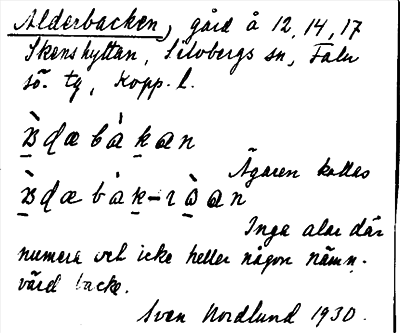 Alderbacken, gård å 12, 14, 17
Skenshyttan, Silvbergs sn, Falu
sö. tg, Kopp. l.
Ägaren kallas
Inga alar där
numera och icke heller någon nämn-
värd backe.
Sven Nordlund 1930.